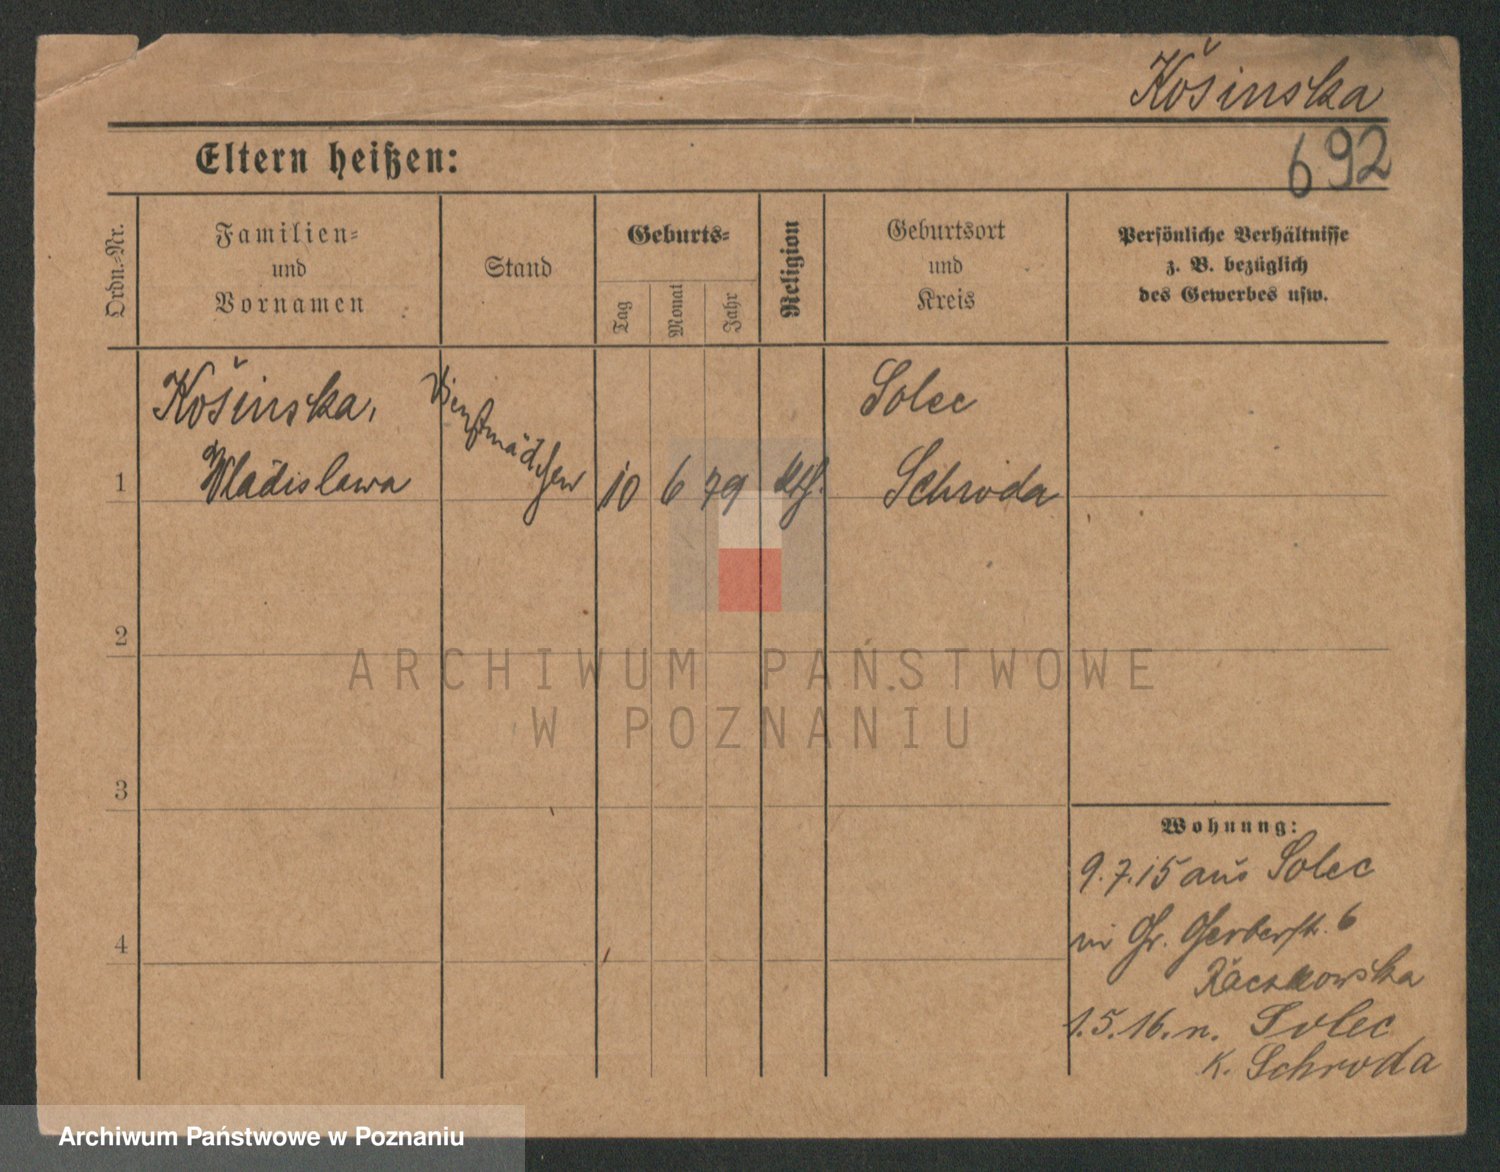 Košinska
692
Eltern heißen:
Ordn.-Nr.
Familien-
und
Vornamen
Stand
Geburts-
Tag
Monat
Jahr
Religion
Geburtsort
und
Kreis
Persönliche Verhältnisse
z. B. bezüglich
des Gewerbes usw.
1
Košinska,
Wladislawa
Dienstmädchen
10 6 79 kth.
Solec
Schroda
2
3
4
Wohnung:
9.7.15 aus Solec
in Gr. Gerberstr. 6
Raczkowska
1.5.16. n. Solec
K. Schroda
ARCHIWUM PAŃSTWOWE
W POZNANIU
Archiwum Państwowe w Poznaniu